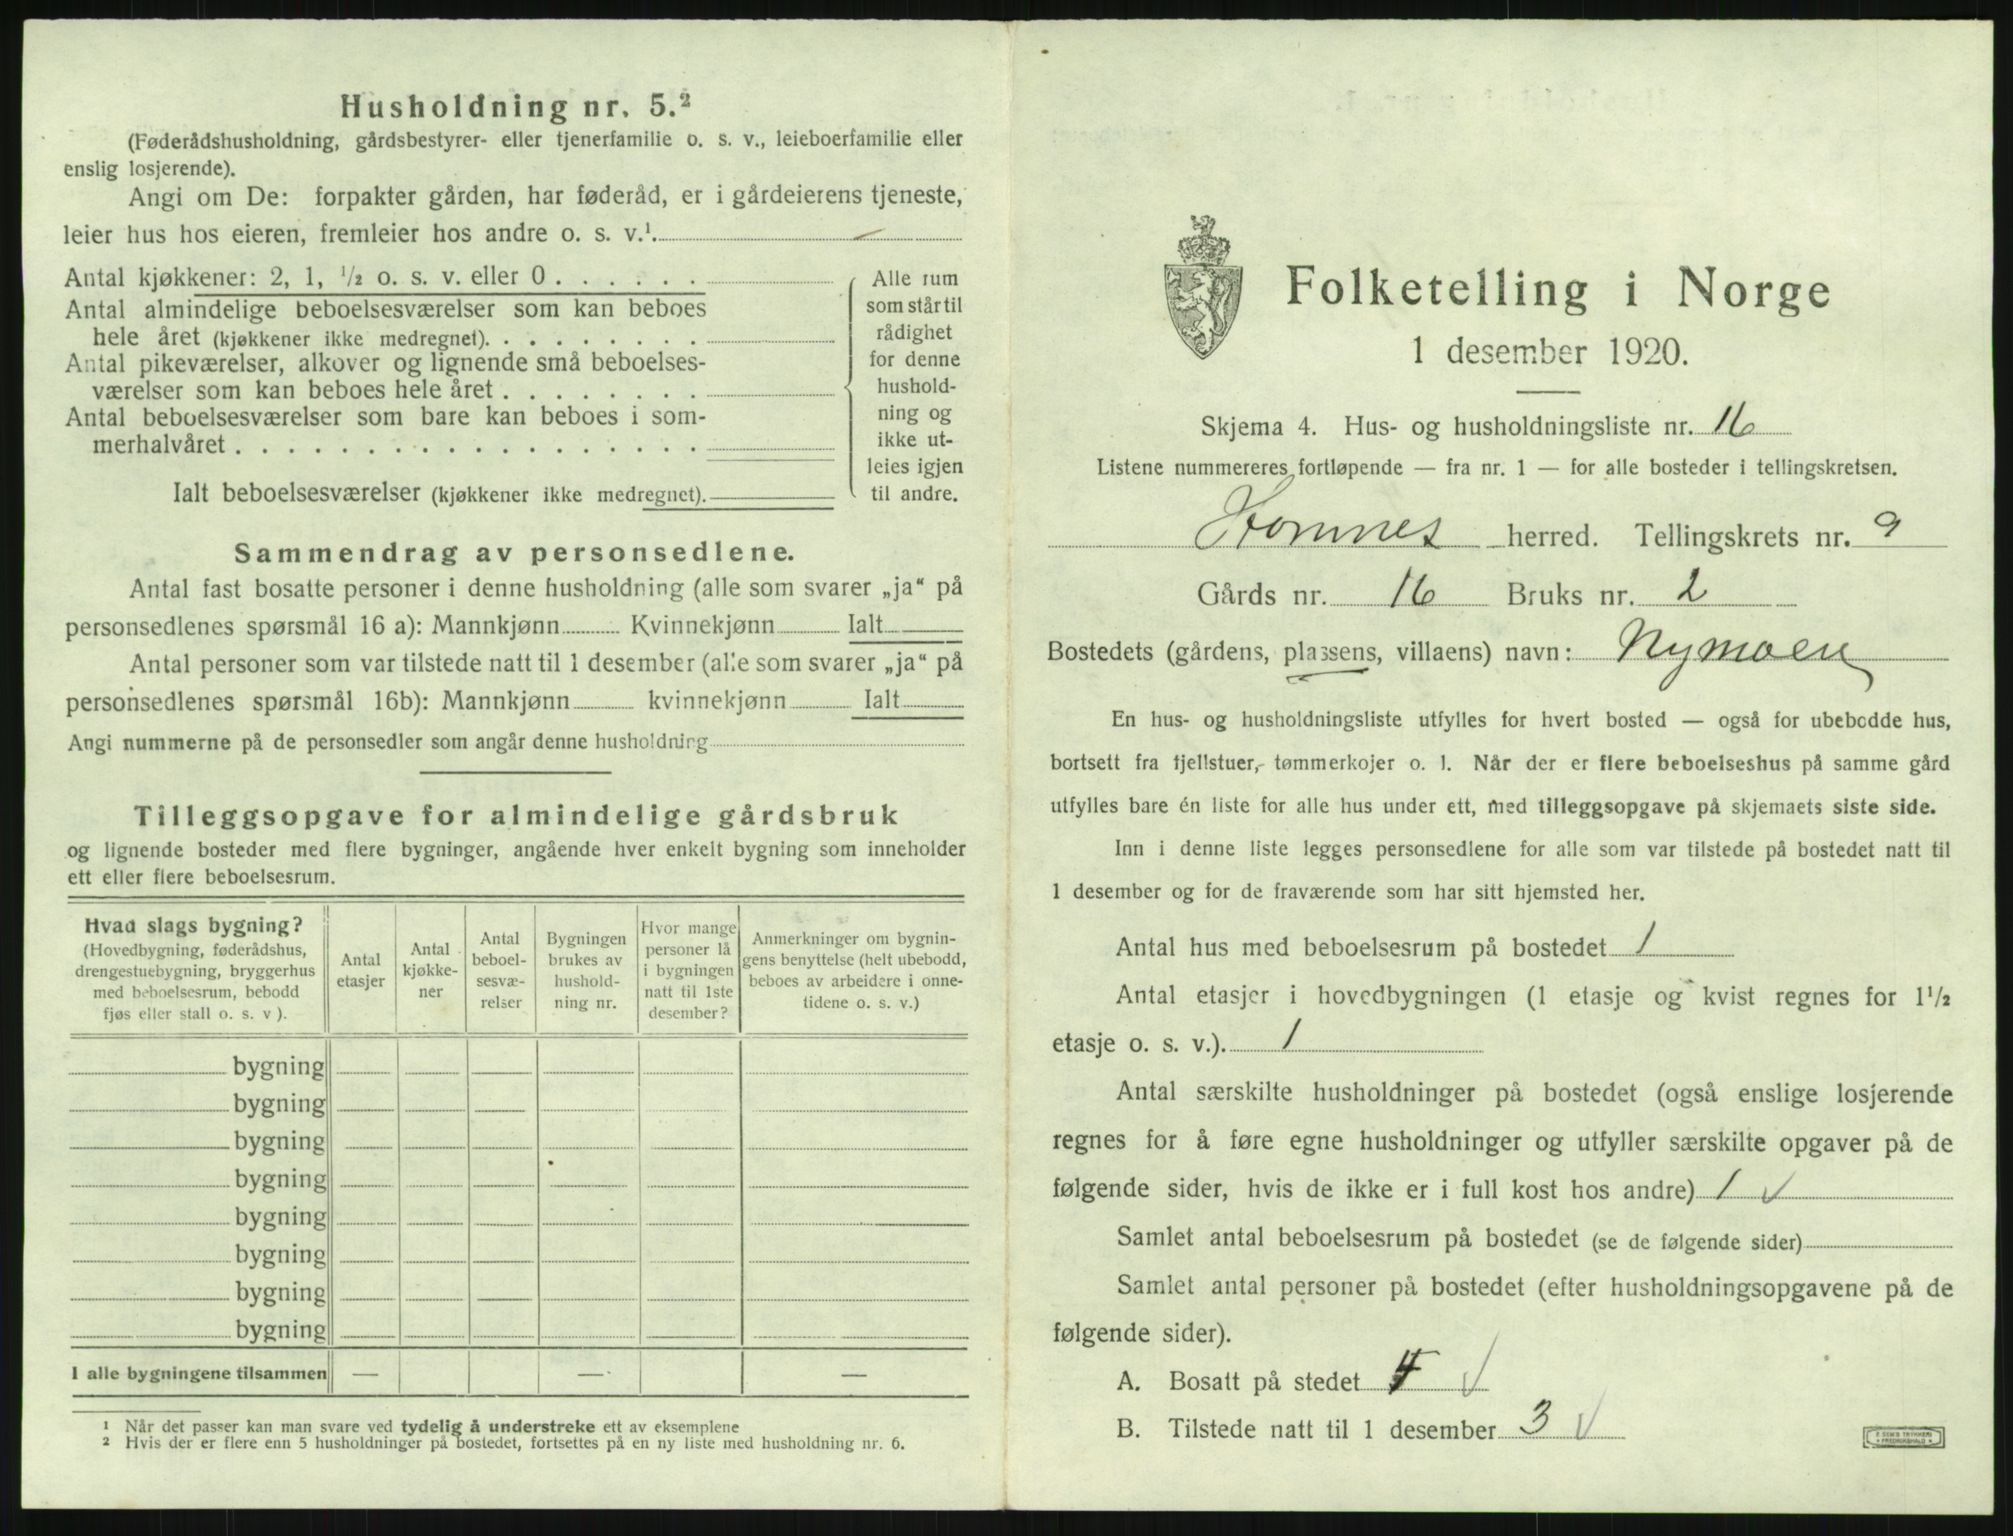 Husholdning nr. 5.²
(Føderådshusholdning, gårdsbestyrer- eller tjenerfamilie o. s. v., leieboerfamilie eller
enslig losjerende).
Angi om De: forpakter gården, har føderåd, er i gårdeierens tjeneste,
leier hus hos eieren, fremleier hos andre o. s. v.¹.
Antal kjøkkener: 2, 1, ½ o. s. v. eller 0 . . . . . .
Antal almindelige beboelsesværelser som kan beboes
hele året (kjøkkener ikke medregnet). . . . . . . . .
Antal pikeværelser, alkover og lignende små beboelses-
værelser som kan beboes hele året . . . . . . . .
Antal beboelsesværelser som bare kan beboes i som-
merhalvåret . . . . . . . . . . . . . . . . . .
Ialt beboelsesværelser (kjøkkener ikke medregnet).
Alle rum
som står til
rådighet
for denne
hushold-
ning og
ikke ut-
leies igjen
til andre.
Sammendrag av personsedlene.
Antal fast bosatte personer i denne husholdning (alle som svarer „ja“ på
personsedlenes spørsmål 16 a): Mannkjønn Kvinnekjønn Ialt
Antal personer som var tilstede natt til 1 desember (alle som svarer „ja“ på
personsedlenes spørsmål 16b): Mannkjønn kvinnekjønn Ialt
Angi nummerne på de personsedler som angår denne husholdning
Tilleggsopgave for almindelige gårdsbruk
og lignende bosteder med flere bygninger, angående hver enkelt bygning som inneholder
ett eller flere beboelsesrum.
Hvad slags bygning?
(Hovedbygning, føderådshus,
drengestuebygning, bryggerhus
med beboelsesrum, bebodd
fjøs eller stall o. s. v ).
Antal
etasjer
Antal
kjøkke-
ner
Antal
beboel-
sesvæ-
relser
Bygningen
brukes av
hushold-
ning nr.
Hvor mange
personer lå
i bygningen
natt til 1ste
desember?
Anmerkninger om bygnin-
gens benyttelse (helt ubebodd,
beboes av arbeidere i onne-
tidene o. s. v.)
bygning
bygning
bygning
bygning
bygning
bygning
bygning
bygning
I alle bygningene tilsammen — — —
¹ Når det passer kan man svare ved tydelig å understreke ett av eksemplene
² Hvis der er flere enn 5 husholdninger på bostedet, fortsettes på en ny liste med husholdning nr. 6.
Folketelling i Norge
1 desember 1920.
Skjema 4. Hus- og husholdningsliste nr. 16
Listene nummereres fortløpende — fra nr. 1 — for alle bosteder i tellingskretsen.
Homnes herred. Tellingskrets nr. 9
Gårds nr. 16 Bruks nr. 2
Bostedets (gårdens, plassens, villaens) navn: Nymoen
En hus- og husholdningsliste utfylles for hvert bosted — også for ubebodde hus,
bortsett fra fjellstuer, tømmerkojer o. l. Når der er flere beboelseshus på samme gård
utfylles bare én liste for alle hus under ett, med tilleggsopgave på skjemaets siste side.
Inn i denne liste legges personsedlene for alle som var tilstede på bostedet natt til
1 desember og for de fraværende som har sitt hjemsted her.
Antal hus med beboelsesrum på bostedet 1
Antal etasjer i hovedbygningen (1 etasje og kvist regnes for 1½
etasje o. s. v.). 1
Antal særskilte husholdninger på bostedet (også enslige losjerende
regnes for å føre egne husholdninger og utfyller særskilte opgaver på de
følgende sider, hvis de ikke er i full kost hos andre) 1 √
Samlet antal beboelsesrum på bostedet (se de følgende sider)
Samlet antal personer på bostedet (efter husholdningsopgavene på de
følgende sider).
A. Bosatt på stedet 4 √
B. Tilstede natt til 1 desember 3 √